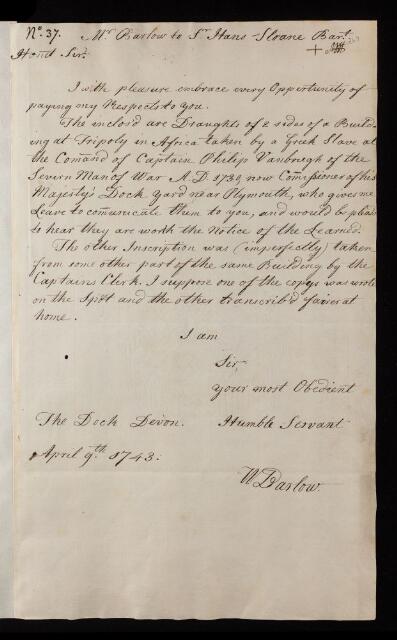 No. 37. Mr. Barlow to Sr. Hans Sloane Bart.
Hond Sir.
I with pleasure embrace every Opportunity of
paying my Respects to you.
The inclos'd are Draughts of 2 sides of a Build-
ing at Tripoly in Africa taken by a Greek Slave at
the Comand of Captain Philip Vanbrugh of the
Severn Man of War A.D. 1730, now Comissioner of his
Majesty's Dock yard near Plymouth, who gives me
Leave to comunicate them to you, and would be pleas'd
to hear they are worth the Notice of the Learned.
The other Inscription was (imperfectly) taken
from some other part of the same Building by the
Captains Clerk. I suppose one of the copys was wrote
on the Spot and the other transcrib'd fairer at
home.
I am
Sir,
your most Obedient
The Dock Devon. Humble Servant
April 9th. 1743.
W Barlow.